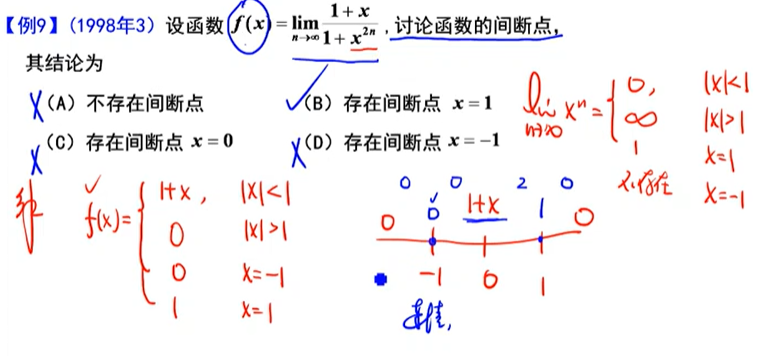 【例9】(1998年3) 设函数 f(x) = lim_{n→∞} (1+x)/(1+x^{2n}), 讨论函数的间断点,
其结论为
X (A) 不存在间断点 ✓ (B) 存在间断点 x = 1
X (C) 存在间断点 x = 0 X (D) 存在间断点 x = −1
lim_{n→∞} x^n = { 0, |x|<1
∞ |x|>1
1 x=1
不存在 x=-1
✓ f(x) = { 1+x, |x|<1
0 |x|>1
0 x=-1
1 x=1
0 0 2 0
0 0 1+x 1 0
-1 0 1
连续,